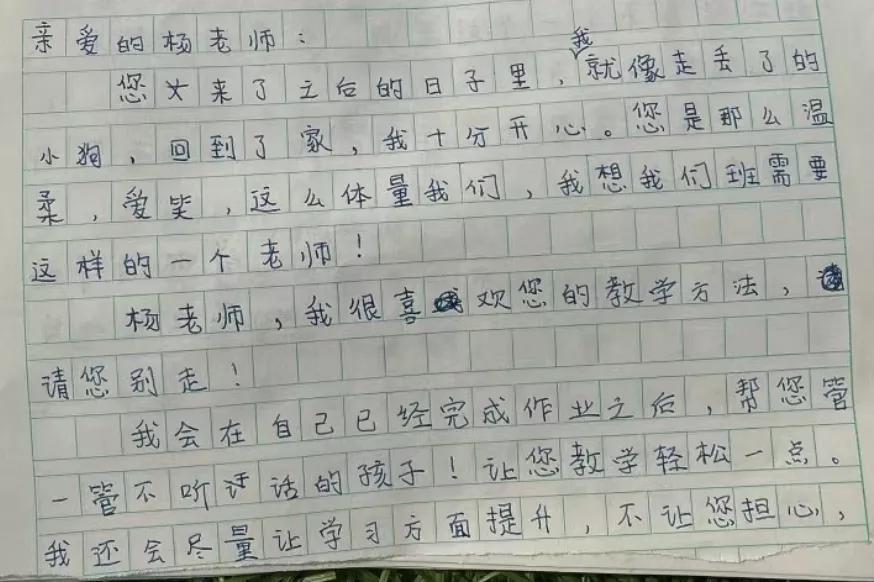 亲爱的杨老师：
您来了之后的日子里，我就像走丢了的
小狗，回到了家，我十分开心。您是那么温
柔，爱笑，这么体量我们，我想我们班需要
这样的一个老师！
杨老师，我很喜欢您的教学方法，
请您别走！
我会在自己已经完成作业之后，帮您管
一管不听话的孩子！让您教学轻松一点。
我还会尽量让学习方面提升，不让您担心，